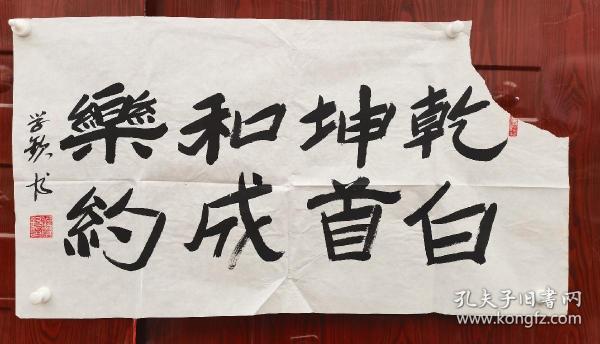 乾白
坤首
和成
樂約
学欽书
孔夫子旧书网
www.kongfz.com